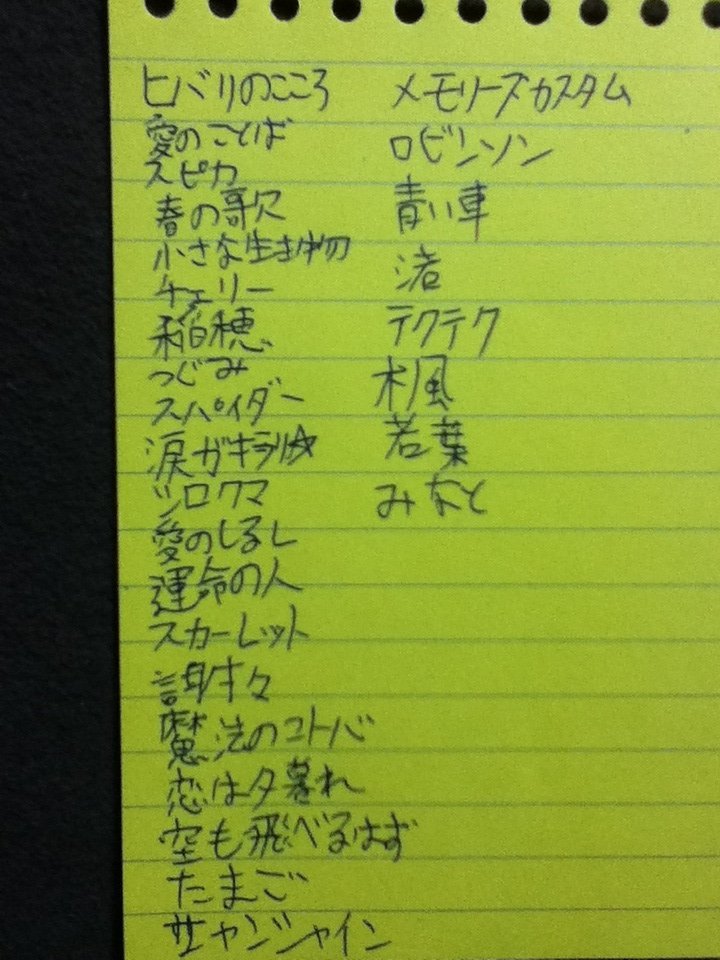 ヒバリのこころ
愛のことば
スピカ
春の歌
小さな生き物
チェリー
稲穂
つぐみ
スパイダー
涙がキラリ☆
シロクマ
愛のしるし
運命の人
スカーレット
謝々
魔法のコトバ
恋は夕暮れ
空も飛べるはず
たまご
サャンシャイン
メモリーズカスタム
ロビンソン
青い車
渚
テクテク
楓
若葉
みなと